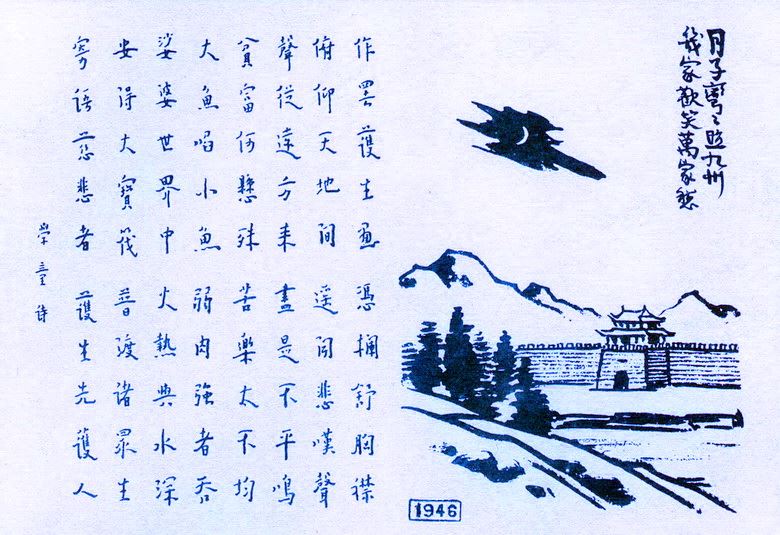 月子彎〻照九州
幾家歡笑萬家愁
作罷護生畫 憑欄舒胸襟
俯仰天地間 遙聞悲嘆聲
聲從遠方來 盡是不平鳴
貧富何懸殊 苦樂太不均
大魚啗小魚 弱肉強者吞
娑婆世界中 火熱與水深
安得大寶筏 普渡諸眾生
寄語慈悲者 護生先護人
學童詩
1946